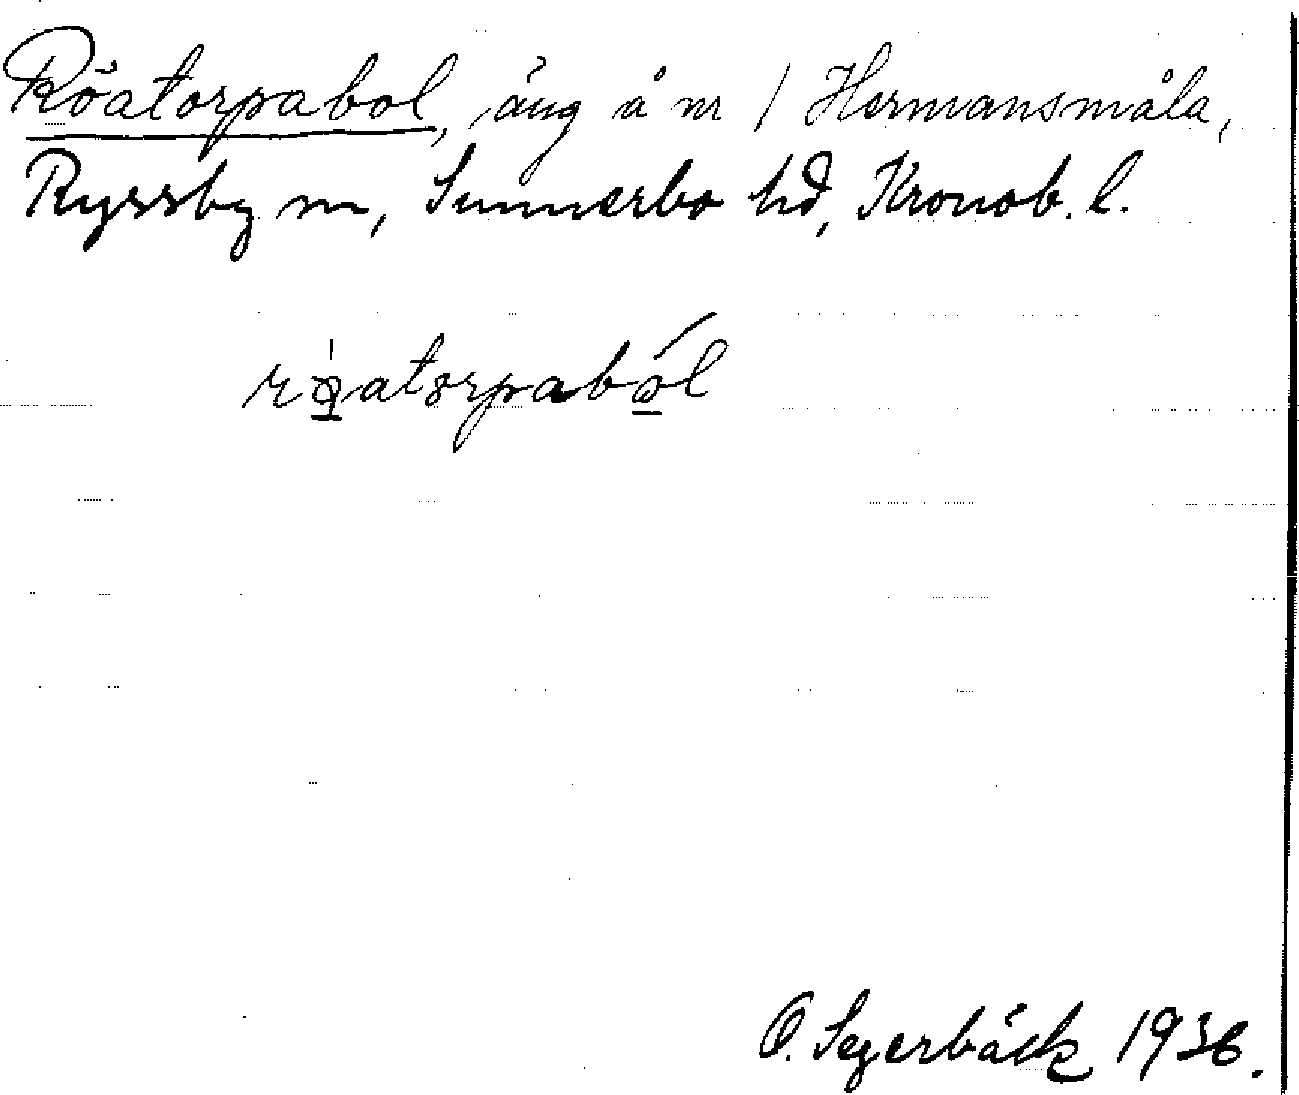 Röatorpabol, äng å nr 1 Hermansmåla,
Ryssby sn, Sunnerbo hd, Kronob. l.
röatorpabol
O. Segerbäck 1936.